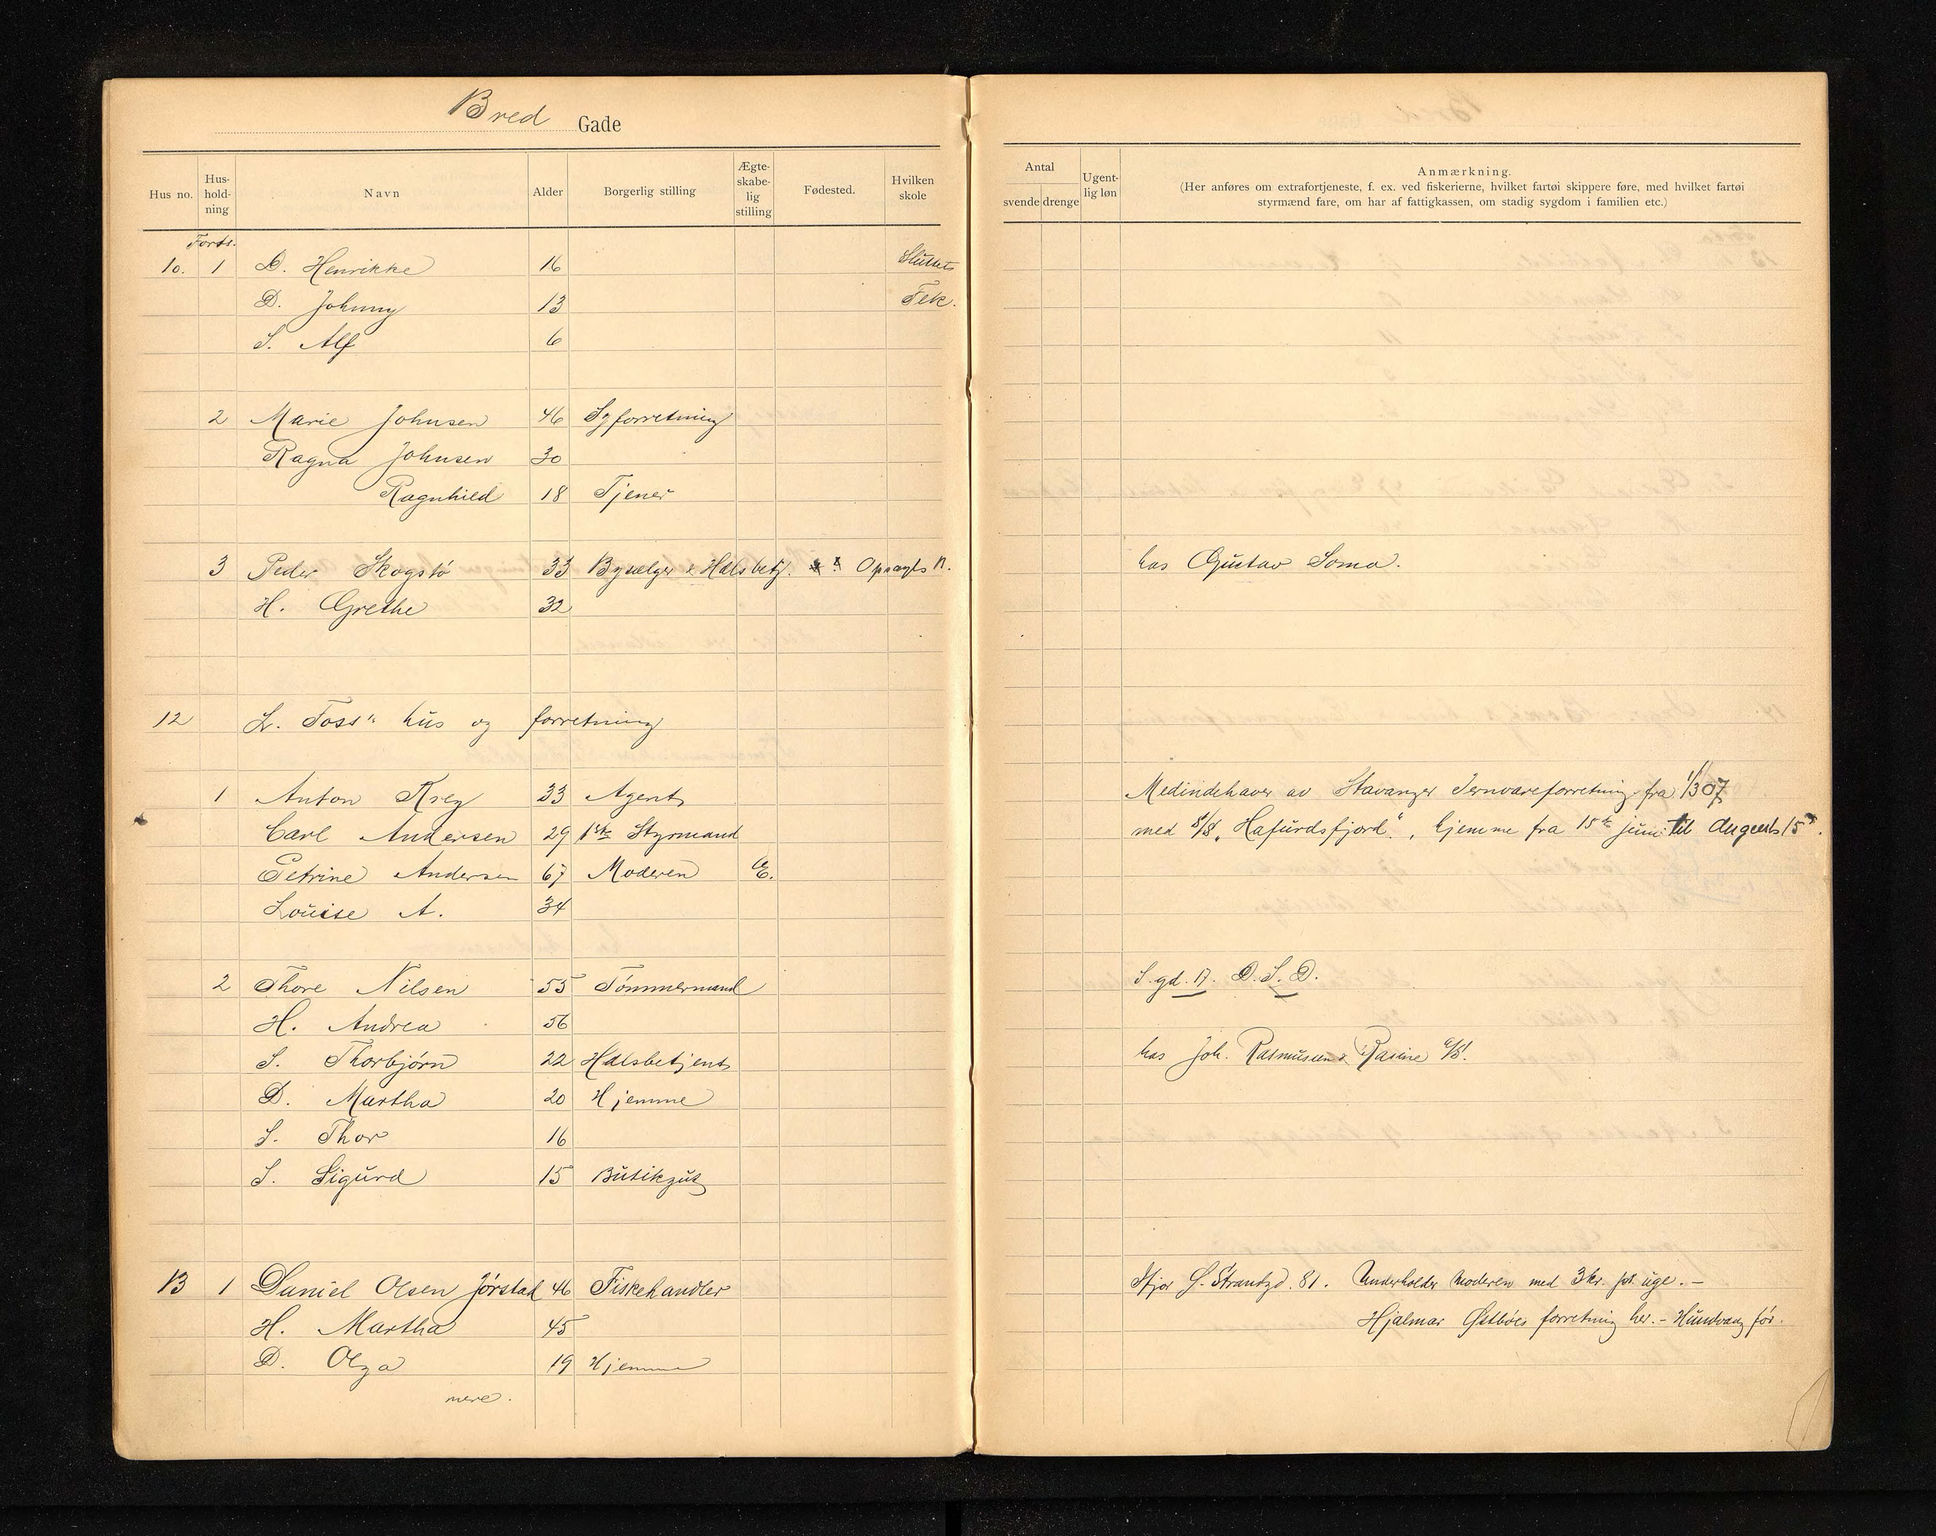 Bred Gade
Hus no. Hus-hold-ning Navn Alder Borgerlig stilling Ægte-skabe-lig stilling Fødested. Hvilken skole
Antal svende drenge Ugent-lig løn Anmærkning.
(Her anføres om extrafortjeneste, f. ex. ved fiskerierne, hvilket fartøi skippere føre, med hvilket fartøi
styrmænd fare, om har af fattigkassen, om stadig sygdom i familien etc.)
Forts.
10. 1 D. Henrikke 16 Sluttet
D. Johnny 13 Tek.
S. Alf 6
2 Marie Johnsen 46 Syforretning
Ragna Johnsen 30
Ragnhild 18 Tjener
3 Peder Skogstø 33 Bysælger & Hdlsbetj. Opsagts n. hos Gustav Soma.
H. Grethe 32
12 L. Toss" hus og forretning
1 Anton Krey 33 Agent Medindehaver av Stavanger Jernvareforretning fra 1/3 07
Carl Andersen 29 1ste Styrmand med S/S. „Hafursfjord“, hjemme fra 15te juni til August 15de.
Petrine Andersen 67 Moderen E.
Louise A. 34
2 Thore Nilsen 55 Tømmermand S. gd. 17. D. S. D.
H. Andrea 56
S. Thorbjørn 22 Hdlsbetjent hos Joh. Rasmussen & Rasine A/S.
D. Martha 20 Hjemme
S. Thor 16
S. Sigurd 15 Butikgut
13 1 Daniel Olsen Jørstad 46 Fiskehandler Ifjor Ø. Strantgd. 81. Underholder Moderen med 3 kr. pr. uge. -
H. Martha 45 Hjalmar Østbøes forretning her. - Hundvaag før.
D. Olga 19 Hjemme
mere.